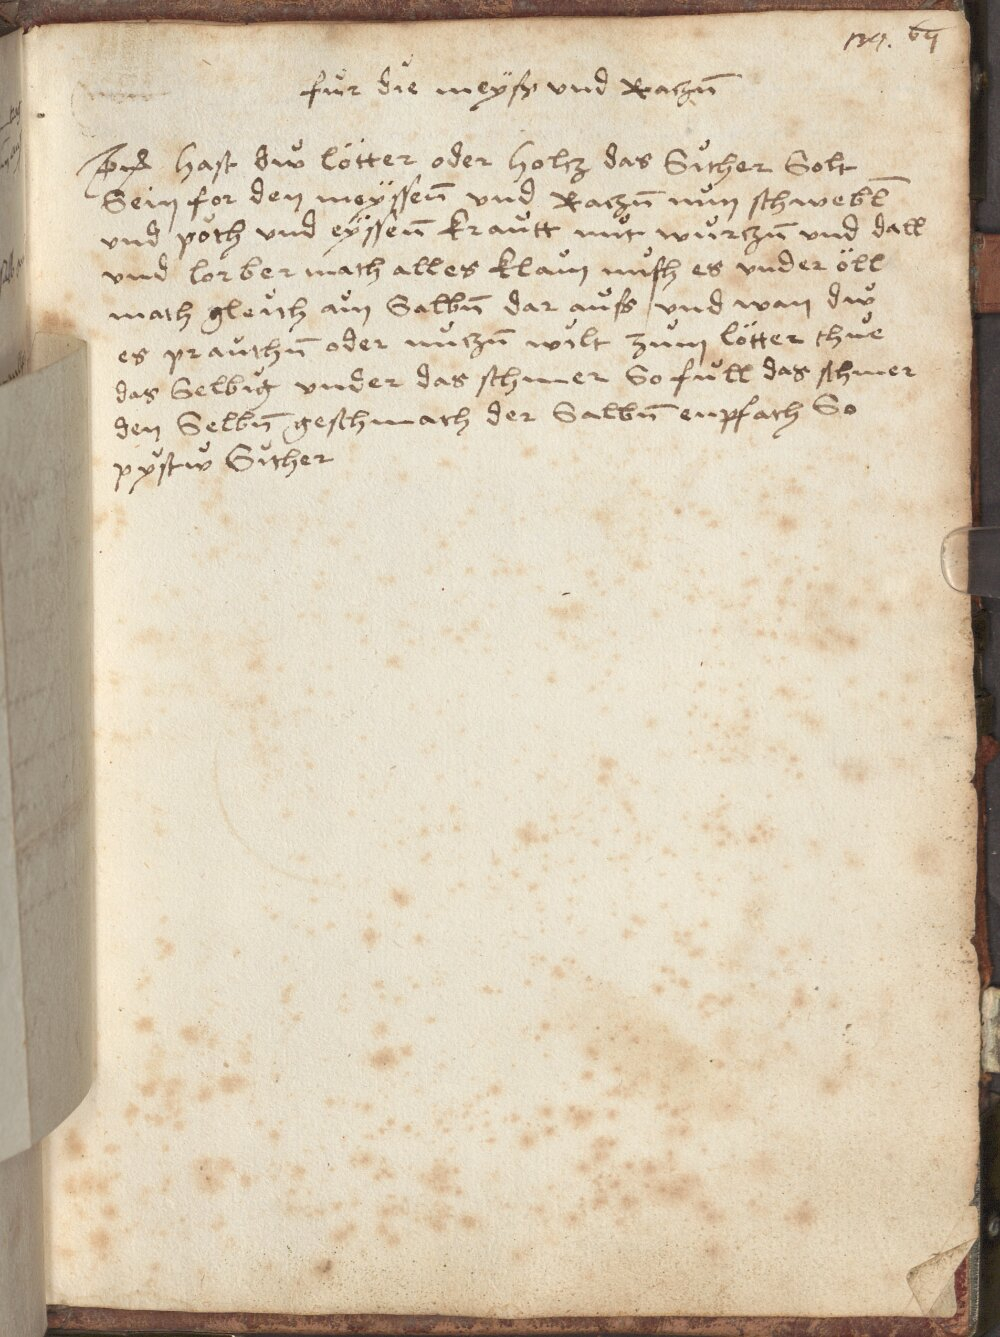 für die meÿss vnd Raczn̄
hast dw lötter oder holcz das Sicher Solt
Sein for den meÿssen̄ vnd Raczn̄ nim schwebl̄
vnd pöch vnd eÿssen̄ krautt mit wurczn̄ vnd dall
vnd lorber mach alles klain misch es vnder öll
mach gleich ain Salbn̄ dar auss vnd wan dw
es prauchn̄ oder nuczn̄ wilt zum lötter thue
das Selbig vnder das schmer So full das schmer
den Selbn̄ geschmach der Salbn̄ enpfach So
pÿstw Sicher